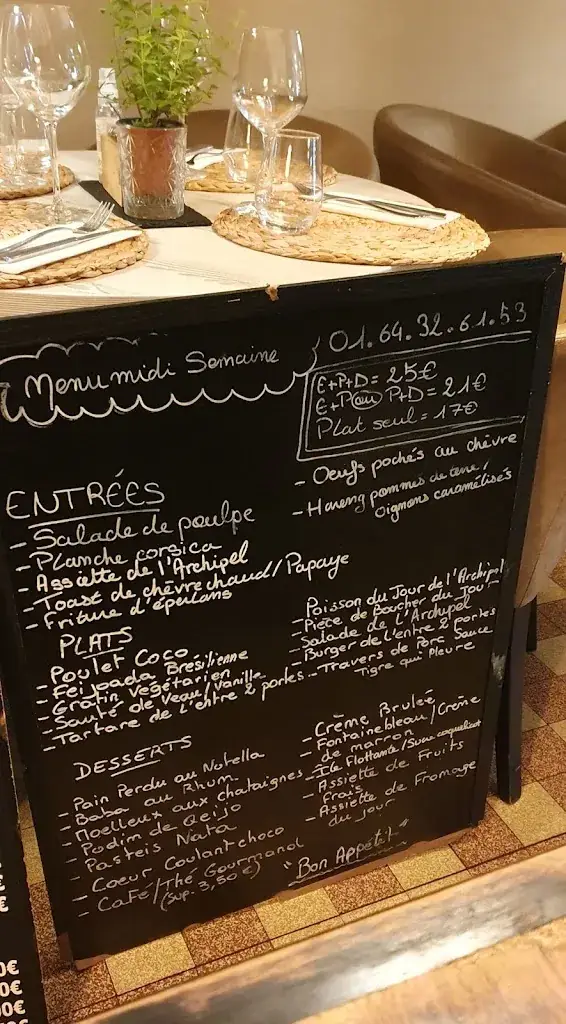 Menu midi Semaine
01.64.32.61.53
E+P+D = 25€
E+P ou P+D = 21€
Plat seul = 17€
ENTRÉES
- Salade de poulpe
- Planche corsica
- Assiette de l'Archipel
- Toast de chèvre chaud / Papaye
- Friture d'éperlans
- Oeufs pochés au chèvre
- Hareng pommes de terre,
oignons caramélisés
PLATS
- Poulet Coco
- Feijoada Bresilienne
- Gratin Vegétarien
- Sauté de Veau / Vanille
- Tartare de l'entre 2 portes
- Poisson du Jour de l'Archipel
- Pièce de Boucher du Jour
- Salade de L'Archipel
- Burger de l'entre 2 portes
- Travers de Porc Sauce
Tigre qui Pleure
DESSERTS
- Pain Perdu au Nutella
- Baba au Rhum
- Moelleux aux chataignes
- Pudim de Queijo
- Pasteis Nata
- Coeur Coulant choco
- Café/Thé Gourmand
(Sup. 3,50€)
- Crème Bruleé
- Fontainebleau / Crème
de marron
- Ile Flottante / Sucre coquelicot
- Assiette de Fruits
frais
- Assiette de Fromage
du jour
"Bon Appétit"